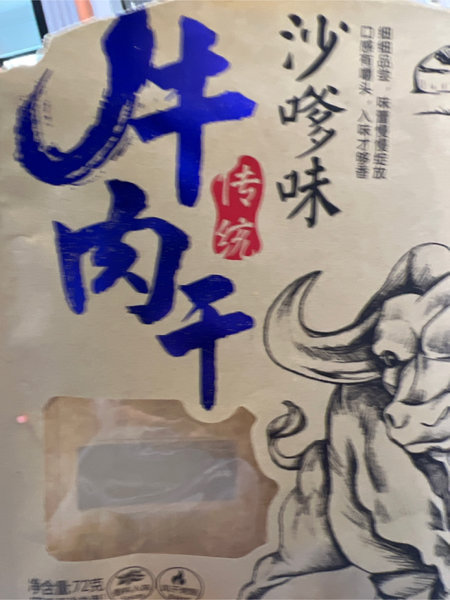 牛肉干
传统
沙嗲味
细细品尝，味蕾慢慢绽放
口感有嚼头，入味才够香
净含量:72克